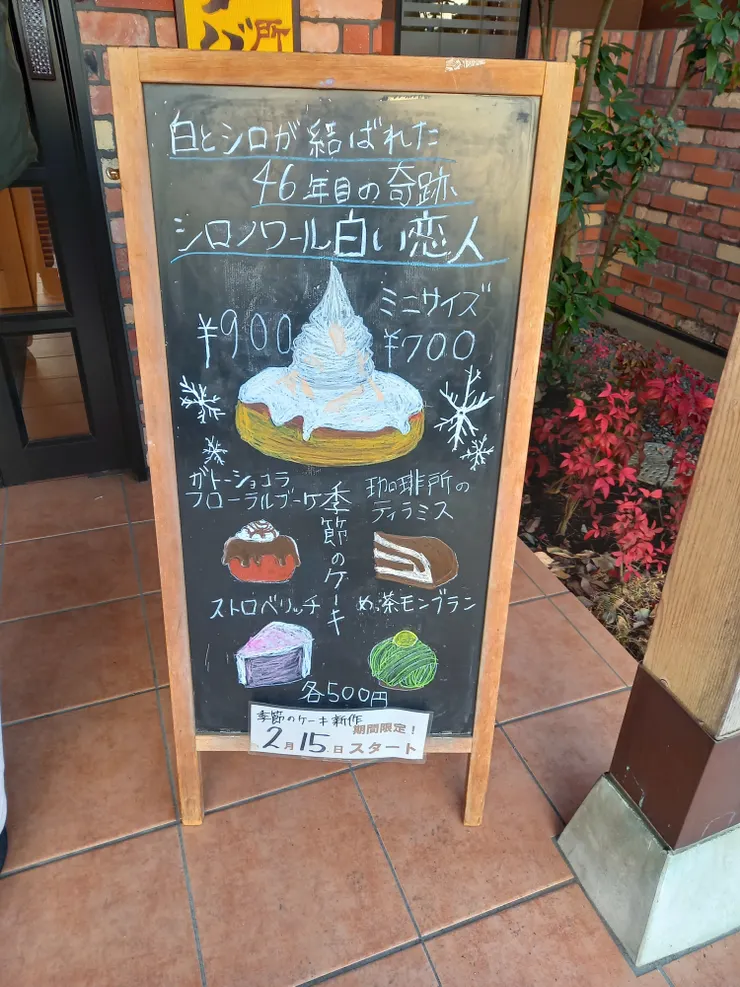 バ 所
白とシロが結ばれた
46年目の奇跡
シロノワール白い恋人
¥900
ミニサイズ
¥700
ガトーショコラ
フローラルブーケ
季節のケーキ
珈琲所の
ティラミス
ストロベリッチ
めっ茶モンブラン
各500円
季節のケーキ新作
期間限定!
2月15日スタート